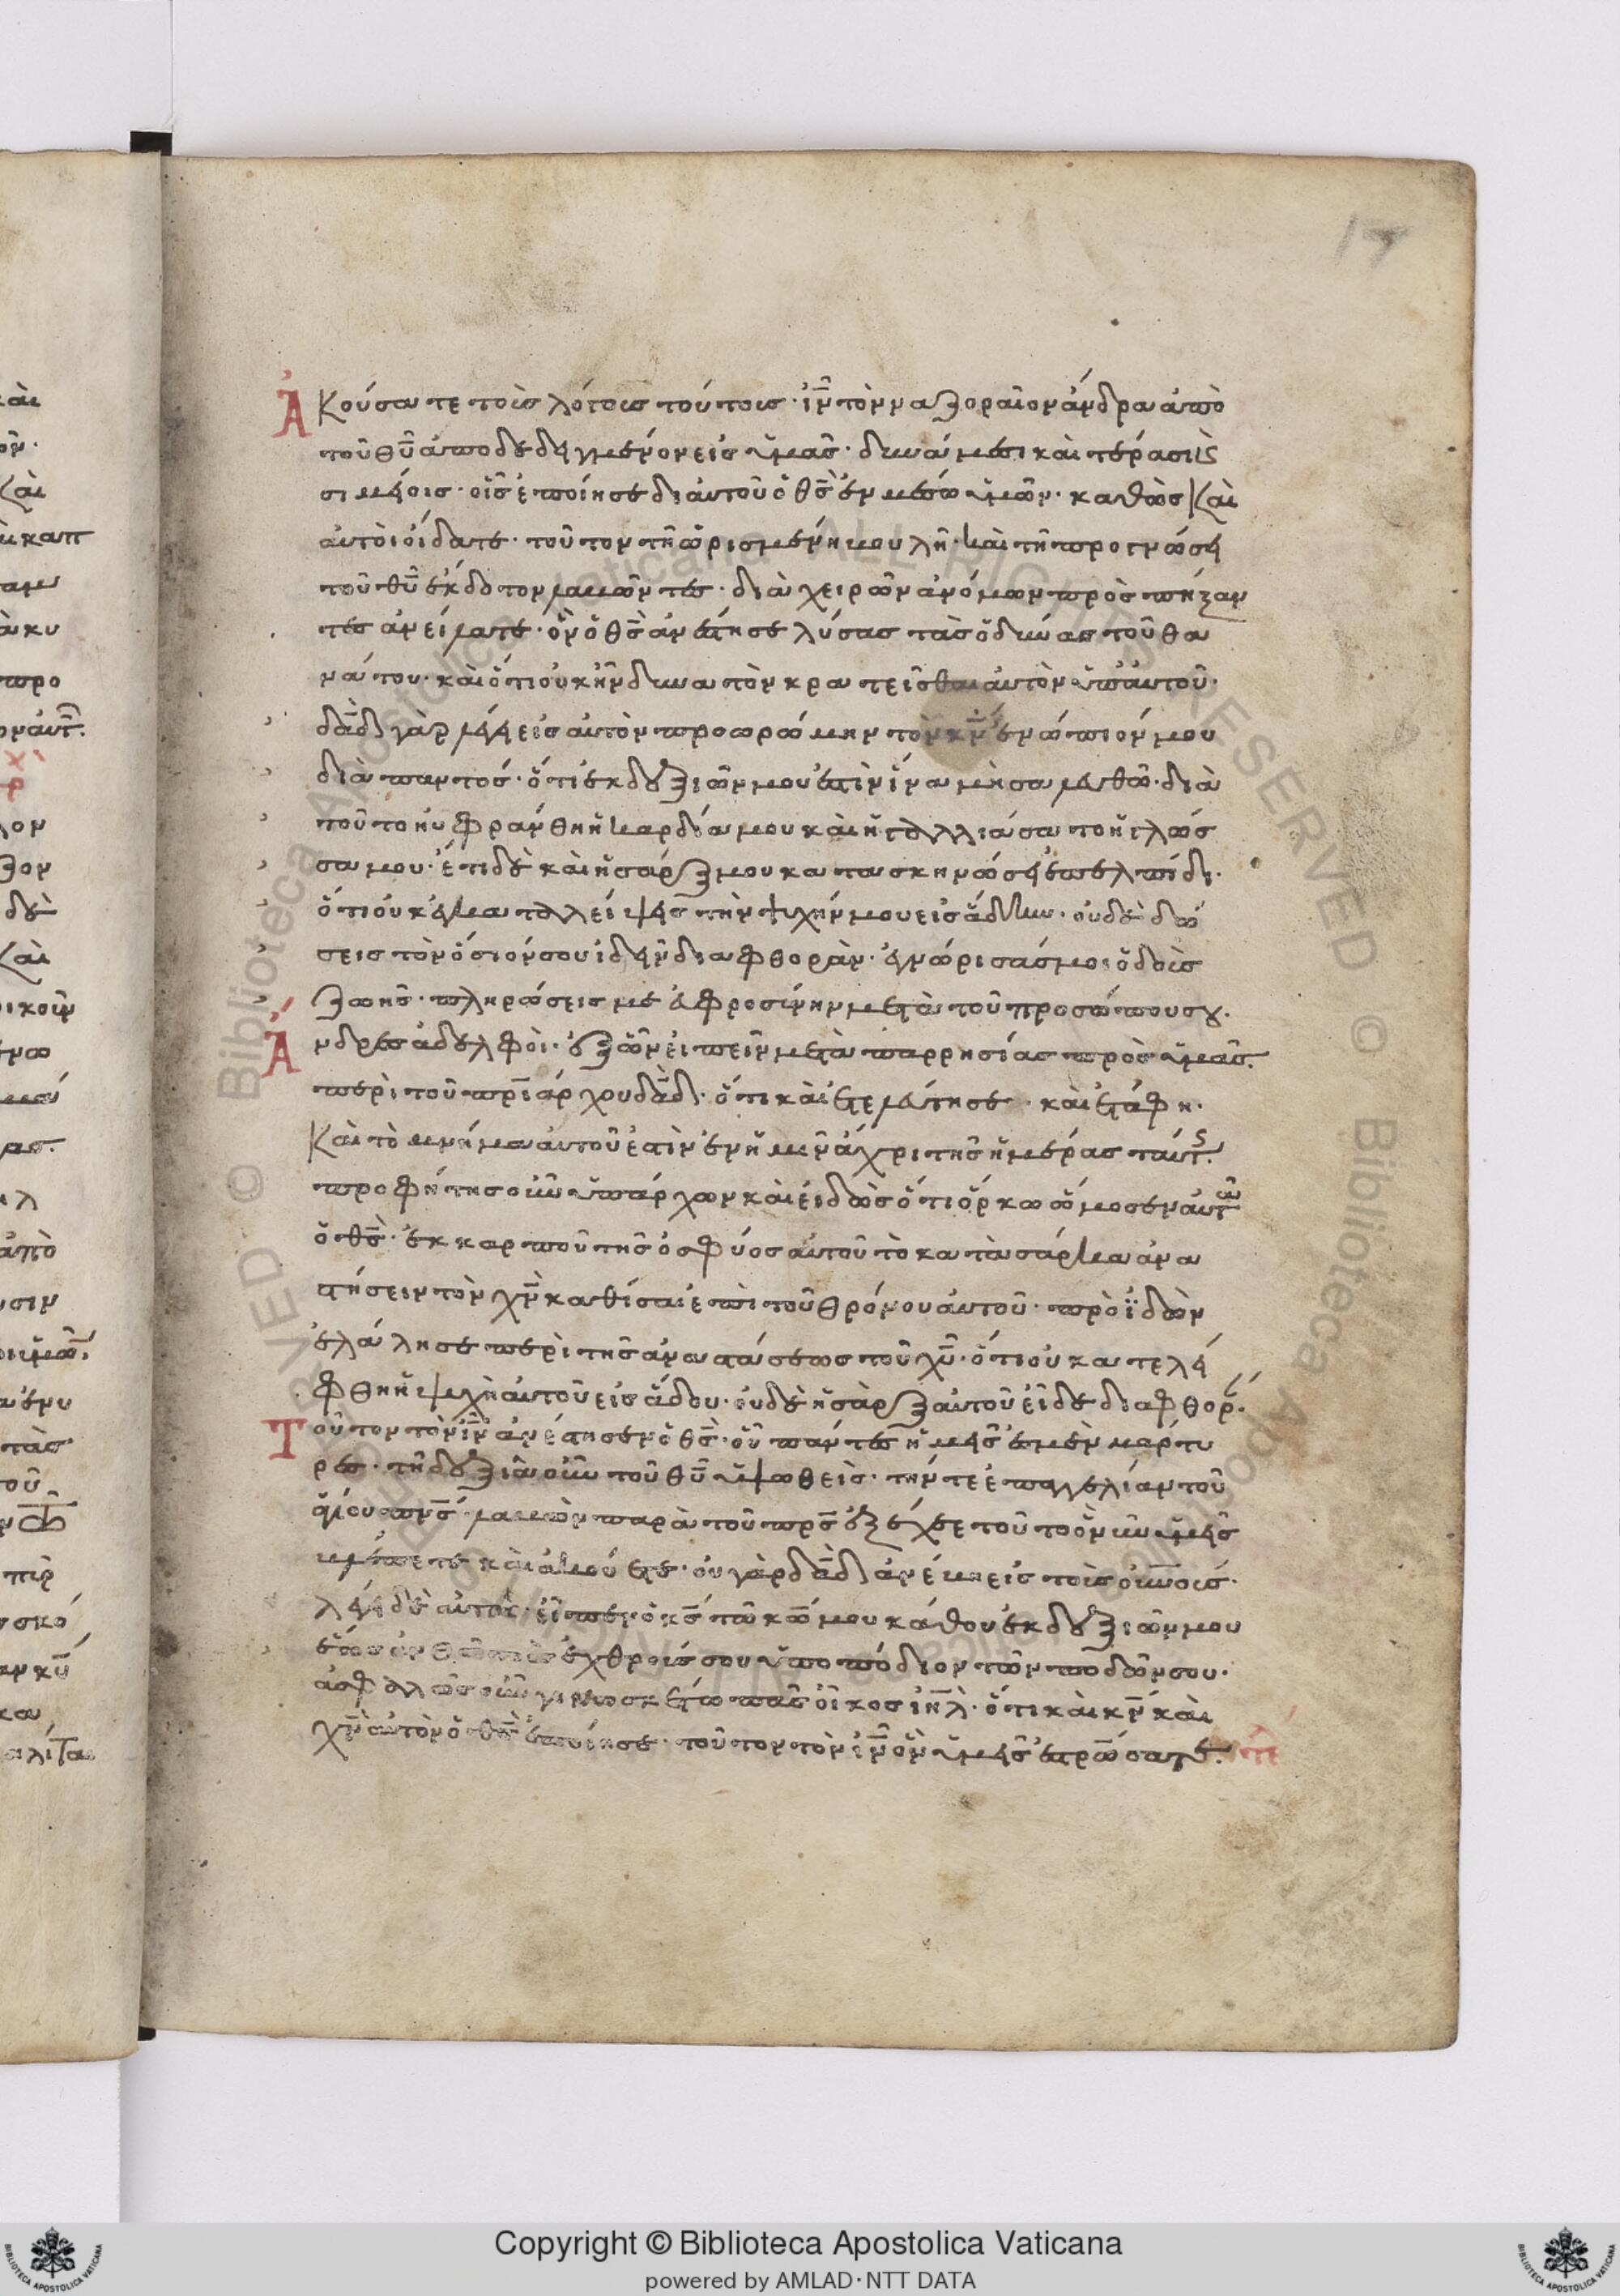 Ἀκούσατε τοῖς λόγοις τούτοις· ἰν̅ τὸν ναζοραῖον ἄνδρα ἀπὸ
τοῦ θυ̅ ἀποδεδειγμένον εἰς ὑμᾶς· δυνάμεσι καὶ τέρασι ϗ
σιμείοις· οἷς ἐποίησε δι αὐτοῦ ὁ θς̅ ἐν μέσω ὑμῶν· καθὼς καὶ
αὐτοὶ οἴδατε· τοῦτον τῆ ὡρισμένη βουλῆ· καὶ τῆ προγνώσει
τοῦ θυ̅ ἔκδοτον λαβῶντες· διὰ χειρῶν ἀνόμων πρὸς πήξαν
τες ἀνείλατε· ὃν ὁ θς̅ ἀνέστησε λύσας τὰς ὀδύνας τοῦ θα
νάτου· καὶ ὅτι οὐκ ἦν δυνατὸν κρατεῖσθαι αὐτὸν ὑπ αὐτοῦ·
δαδ̅ γὰρ λέγει εἰς αὐτὸν προορώμην τὸν κν̅ ἐνώπιόν μου
διὰ παντός· ὅτι ἐκ δεξιῶν μου ἐστὶν ἵνα μὴ σαλευθῶ· διὰ
τοῦτο ηὐφράνθη ἡ καρδία μου καὶ ἠγαλλιάσατο ἡ γλῶσ
σα μου· ἔτι δὲ καὶ ἡ σάρξ μου κατασκηνώσει ἐπ ἐλπίδι·
ὅτι οὐκ ἐγκαταλείψεις τὴν ψυχήν μου εἰς ἅδην· οὐδὲ δώ
σεις τὸν ὅσιόν σου ἰδεῖν διαφθοράν· ἐγνώρισάς μοι ὁδοὺς
ζωῆς· πληρώσεις με εὐφροσύνην μετὰ τοῦ προσώπου σου·
Ἄνδρες ἀδελφοὶ· ἐξῶν εἰπεῖν μετὰ παρρησίας πρὸς ὑμᾶς·
περὶ τοῦ πριάρχου δαδ̅· ὅτι καὶ ἐτελεύτησε· καὶ ἐτάφη·
Καὶ τὸ μνήμα αὐτοῦ ἐστὶν ἐν ἡμῖν ἄχρι τῆς ἡμέρας ταύτης·
προφήτης οὖν ὑπάρχων καὶ εἰδὼς ὅτι ὅρκω ὤμοσεν αὐτῶ
ὁ θς̅· ἐκ καρποῦ τῆς ὀσφύος αὐτοῦ τὸ κατὰ σάρκα ἀνα
στήσειν τὸν χν̅ καθίσαι ἐπὶ τοῦ θρόνου αὐτοῦ· προϊδὼν
ἐλάλησε περὶ τῆς ἀναστάσεως τοῦ χυ̅· ὅτι οὐ κατελεί
φθη ἡ ψυχὴ αὐτοῦ εἰς ἅδου· οὐδὲ ἡ σὰρξ αὐτοῦ εἶδε διαφθορ·
Τοῦτον τὸν ἰν̅ ἀνέστησεν ὁ θς̅· οὗ πάντες ἡμεῖς ἐσμὲν μάρτυ
ρες· τῆ δεξιᾶ οὖν τοῦ θυ̅ ὑψωθεὶς· τήν τε ἐπαγγελίαν τοῦ
ἁγίου πνς̅ λαβὼν παρὰ τοῦ πρς̅ ἐξέχεε τοῦτο ὃ νῦν ὑμεῖς
βλέπετε καὶ ἀκούετε· οὐ γὰρ δαδ̅ ἀνέβη εἰς τοὺς οὐνους·
λέγει δὲ αὐτός· εἶπεν ὁ κς̅ τῶ κω̅ μου κάθου ἐκ δεξιῶν μου
ἕως ἂν θῶ τοὺς ἐχθρούς σου ὑποπόδιον τῶν ποδῶν σου·
ἀσφαλῶς οὖν γινωσκέτω πᾶς οἶκος ιηλ̅· ὅτι καὶ κν̅ καὶ
χν̅ αὐτὸν ὁ θς̅ ἐποίησε· τοῦτον τὸν ἰν̅ ὃν ὑμεῖς ἐστρώσατε·